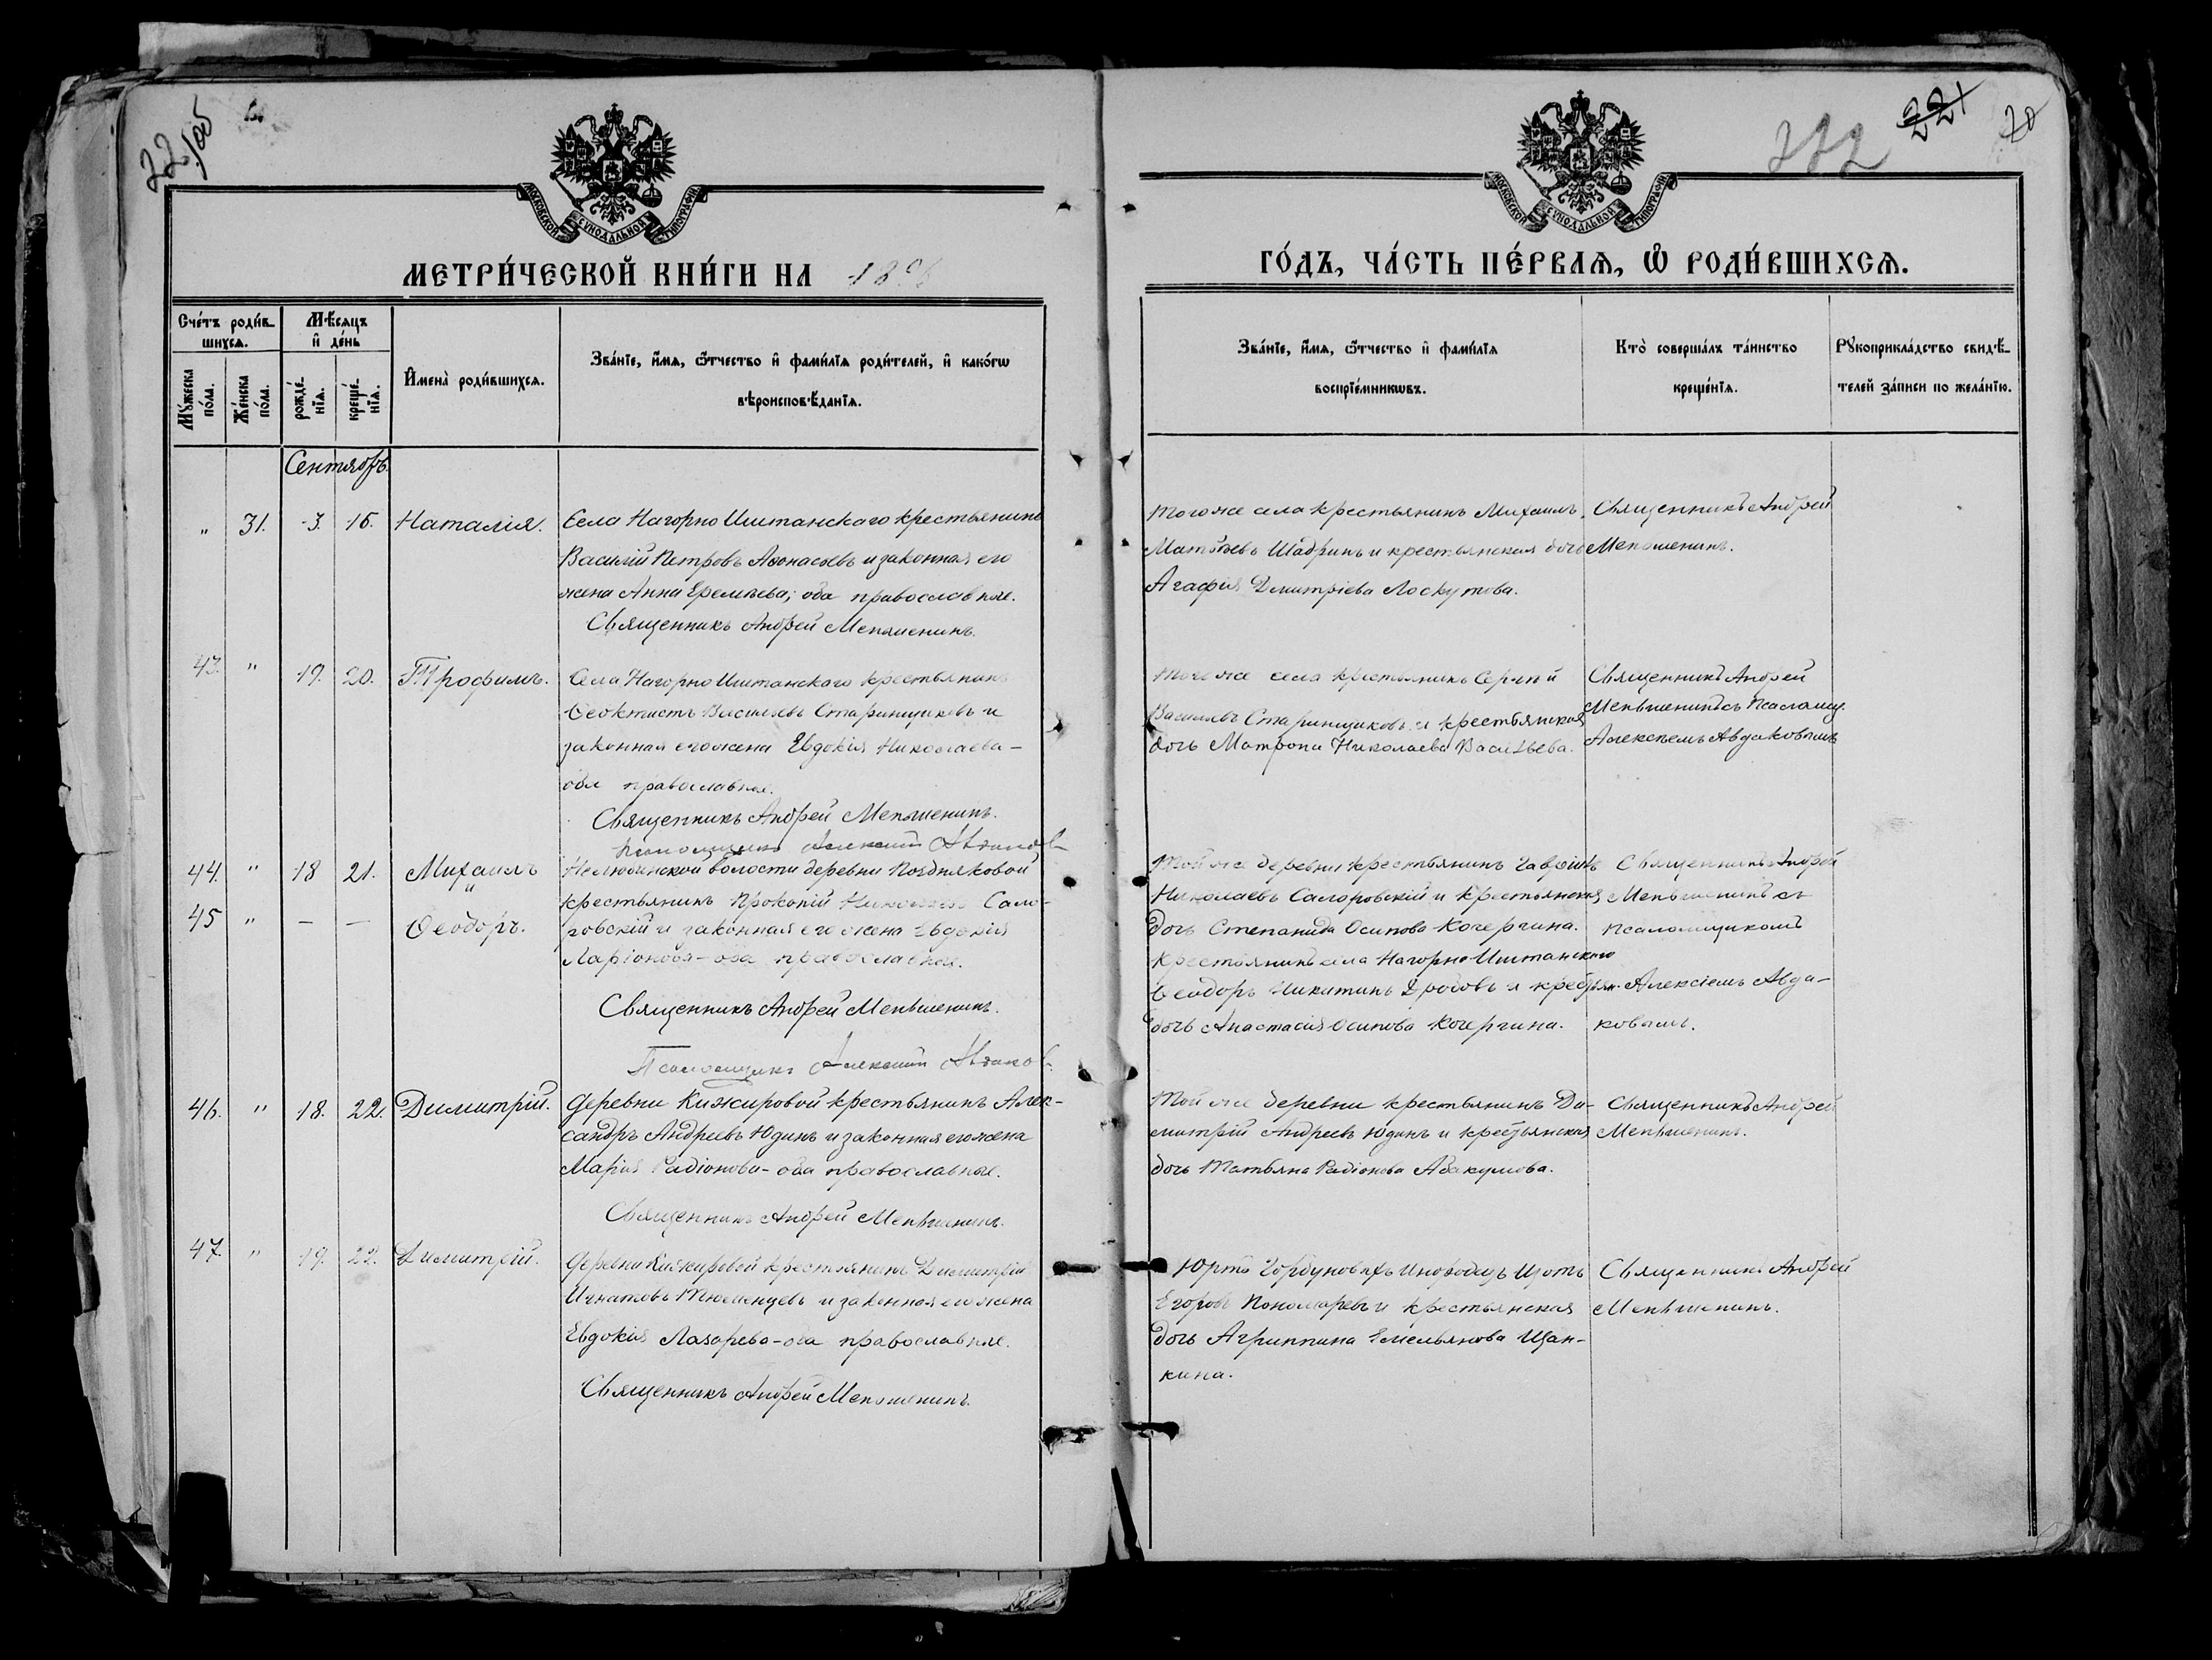 22 /об
222
221
20
МОСКОВСКОЙ СУНОДАЛЬНОЙ ТИПОГРАФІИ
МОСКОВСКОЙ СУНОДАЛЬНОЙ ТИПОГРАФІИ
МЕТРИ́ЧЕСКОЙ КНИ́ГИ НА 189
ГО́ДЪ, ЧА́СТЬ ПЕ́РВАѦ, Ѽ РОДИ́ВШИХСѦ.
Сче́тъ роди́в-
шихсѧ.
Мꙋ́жеска по́ла.
Же́нска по́ла.
Мѣ́сѧцъ
и҆ де́нь
рожде́-
нїѧ.
креще́-
нїѧ.
И҆мена̀ роди́вшихсѧ.
Зва́нїе, и҆́мѧ, ѻ҆́тчество и҆ фами́лїѧ роди́телей, и҆ како́гѡ
вѣроисповѣ́данїѧ.
Зва́нїе, и҆́мѧ, ѻ҆́тчество и҆ фами́лїѧ
воспрїе́мникѡвъ.
Кто̀ соверша́лъ та́инство
креще́нїѧ.
Рꙋкоприкла́дство свидѣ́-
телей за́писи по жела́нїю.
Сентябрь.
„ 31. 3. 15. Наталія.
Села Нагорно Иштанскаго крестьянинъ
Василій Петровъ Аѳонасьевъ и законная его
жена Анна Еремѣева; оба православные.
Священникъ Андрей Меньшенинъ.
Того же села крестьянинъ Михаилъ
Матѳѣевъ Шадринъ и крестьянская дочь
Агафія Димитріева Лоскутова.
Священникъ Андрей
Меньшенинъ.
43. „ 19. 20. Трофимъ.
Села Нагорно Иштанскаго крестьянинъ
Ѳеоктистъ Васильевъ Старинщиковъ и
законная его жена Евдокія Николаева —
оба православные.
Священникъ Андрей Меньшенинъ.
Псаломщикъ Алексій Авдаковъ
Того же села крестьянинъ Сергій
Васильевъ Старинщиковъ и крестьянская
дочь Матрона Николаева Васильева.
Священникъ Андрей
Меньшенинъ съ Псаломщ.
Алексѣемъ Авдаковымъ
44. „ 18 21. Михаилъ
и
45 „ — — Ѳеодоръ.
Нелюбинской волости деревни Поздняковой
крестьянинъ Прокопій Николаевъ Само-
ровскій и законная его жена Евдокія
Ларіонова — оба православные.
Священникъ Андрей Меньшенинъ.
Псаломщикъ Алексій Авдаковъ.
Той же деревни крестьянинъ Гавріилъ
Николаевъ Саморовскій и крестьянская
дочь Степанида Осипова Кочергина.
Крестьянинъ села Нагорно Иштанскаго
Ѳеодоръ Никитинъ Дробовъ и крестьян.
дочь Анастасія Осипова Кочергина.
Священникъ Андрей
Меньшенинъ съ
псаломщикомъ
Алексіемъ Авда-
ковымъ.
46. „ 18. 22. Димитрій.
Деревни Кижировой крестьянинъ Алек-
сандръ Андреевъ Юдинъ и законная его жена
Марія Радіонова — оба православные.
Священникъ Андрей Меньшенинъ.
Той же деревни крестьянинъ Ди-
митрій Андреевъ Юдинъ и крестьянская
дочь Татьяна Радіонова Абакумова.
Священникъ Андрей
Меньшенинъ.
47. „ 19. 22. Димитрій.
Деревни Кижировой крестьянинъ Димитрій
Игнатовъ Тюменцевъ и законная его жена
Евдокія Лазарева — оба православные.
Священникъ Андрей Меньшенинъ.
Юртъ Горбуновыхъ инородецъ
Егоровъ Пономаревъ и крестьянская
дочь Агриппина Емельянова Щан-
кина.
Священникъ Андрей
Меньшенинъ.